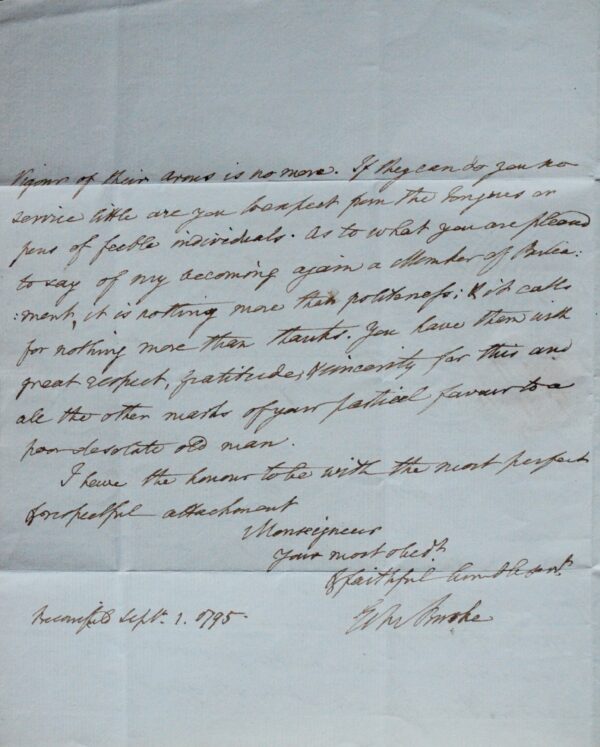 Vigour of their arms is no more. If they can do you no
service little are you to expect from the tongues or
pens of feeble individuals. As to what you are pleasd
to say of my becoming again a Member of Parlia:
:ment, it is nothing more than politeness; & it calls
for nothing more than thanks. You have them with
great respect, gratitude, & sincerity for this and
all the other marks of your partial favour to a
poor desolate old man.
I have the honour to be with the most perfect
& respectful attachment
Monseigneur
Your most obedt.
& faithful humble servt.
Edm Burke
Beconsfd Septr. 1. 1795.